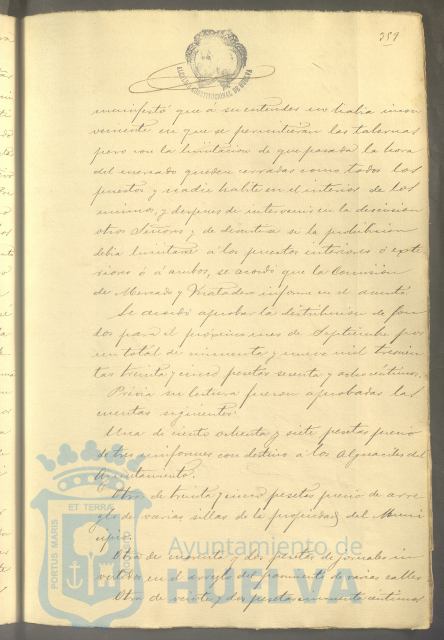 359
ALCALDIA CONSTITUCIONAL DE HUELVA
manifestó que á su entender no habia incon-
veniente en que se permitieran las tabernas
pero con la limitacion de que pasada la hora
del mercado queden cerradas como todos los
puestos y nadie habite en el interior de los
mismos, y despues de intervenir en la discusion
otros Señores y de discutirse si la prohibicion
debia limitarse á los puestos interiores ó exte-
riores ó á ambos, se acordó que la Comision
de Mercado y Matadero informe en el asunto.
Se acordó aprobar la distribucion de fon-
dos para el próximo mes de Septiembre por
un total de cincuenta y nueve mil trescien-
tas treinta y cinco pesetas sesenta y ocho céntimos.
Prévia su lectura fueron aprobadas las
cuentas siguientes:
Una de ciento ochenta y siete pesetas precio
de tres uniformes con destino a los Alguaciles del
Ayuntamiento.
Otra de treinta y cinco pesetas precio de arre-
glo de varias sillas de la propiedad del Muni-
cipio.
Otra de cuarenta y dos pesetas de jornales in-
vertidos en el arreglo del pavimento de varias calles
Otra de veinte y dos pesetas cincuenta céntimos
PORTUS MARIS ET TERRAE CUSTODIA
Ayuntamiento de
HUELVA